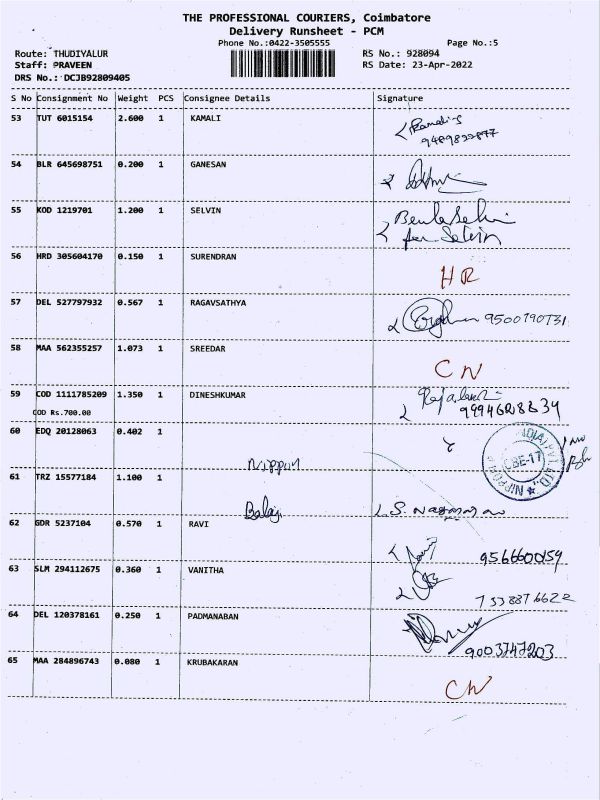 THE PROFESSIONAL COURIERS, Coimbatore
Delivery Runsheet - PCM
Phone No.:0422-3505555
Page No.:5
Route: THUDIYALUR
RS No.: 928094
Staff: PRAVEEN
RS Date: 23-Apr-2022
DRS No.: DCJB92809405
S No Consignment No Weight PCS Consignee Details Signature
53 TUT 6015154 2.600 1 KAMALI Kamali-s
54 BLR 645698751 0.200 1 GANESAN
55 KOD 1219701 1.200 1 SELVIN
for Selvin
56 HRD 305604170 0.150 1 SURENDRAN
HR
57 DEL 527797932 0.567 1 RAGAVSATHYA
9500790731
58 MAA 562355257 1.073 1 SREEDAR
CN
59 COD 1111785209 1.350 1 DINESHKUMAR
COD Rs.700.00
60 EDQ 20128063 0.402 1
Nippon
CBE-17
61 TRZ 15577184 1.100 1
Balaji
62 GDR 5237104 0.570 1 RAVI
9566600159
63 SLM 294112675 0.360 1 VANITHA
7538876622
64 DEL 120378161 0.250 1 PADMANABAN
9003747203
65 MAA 284896743 0.080 1 KRUBAKARAN
CN